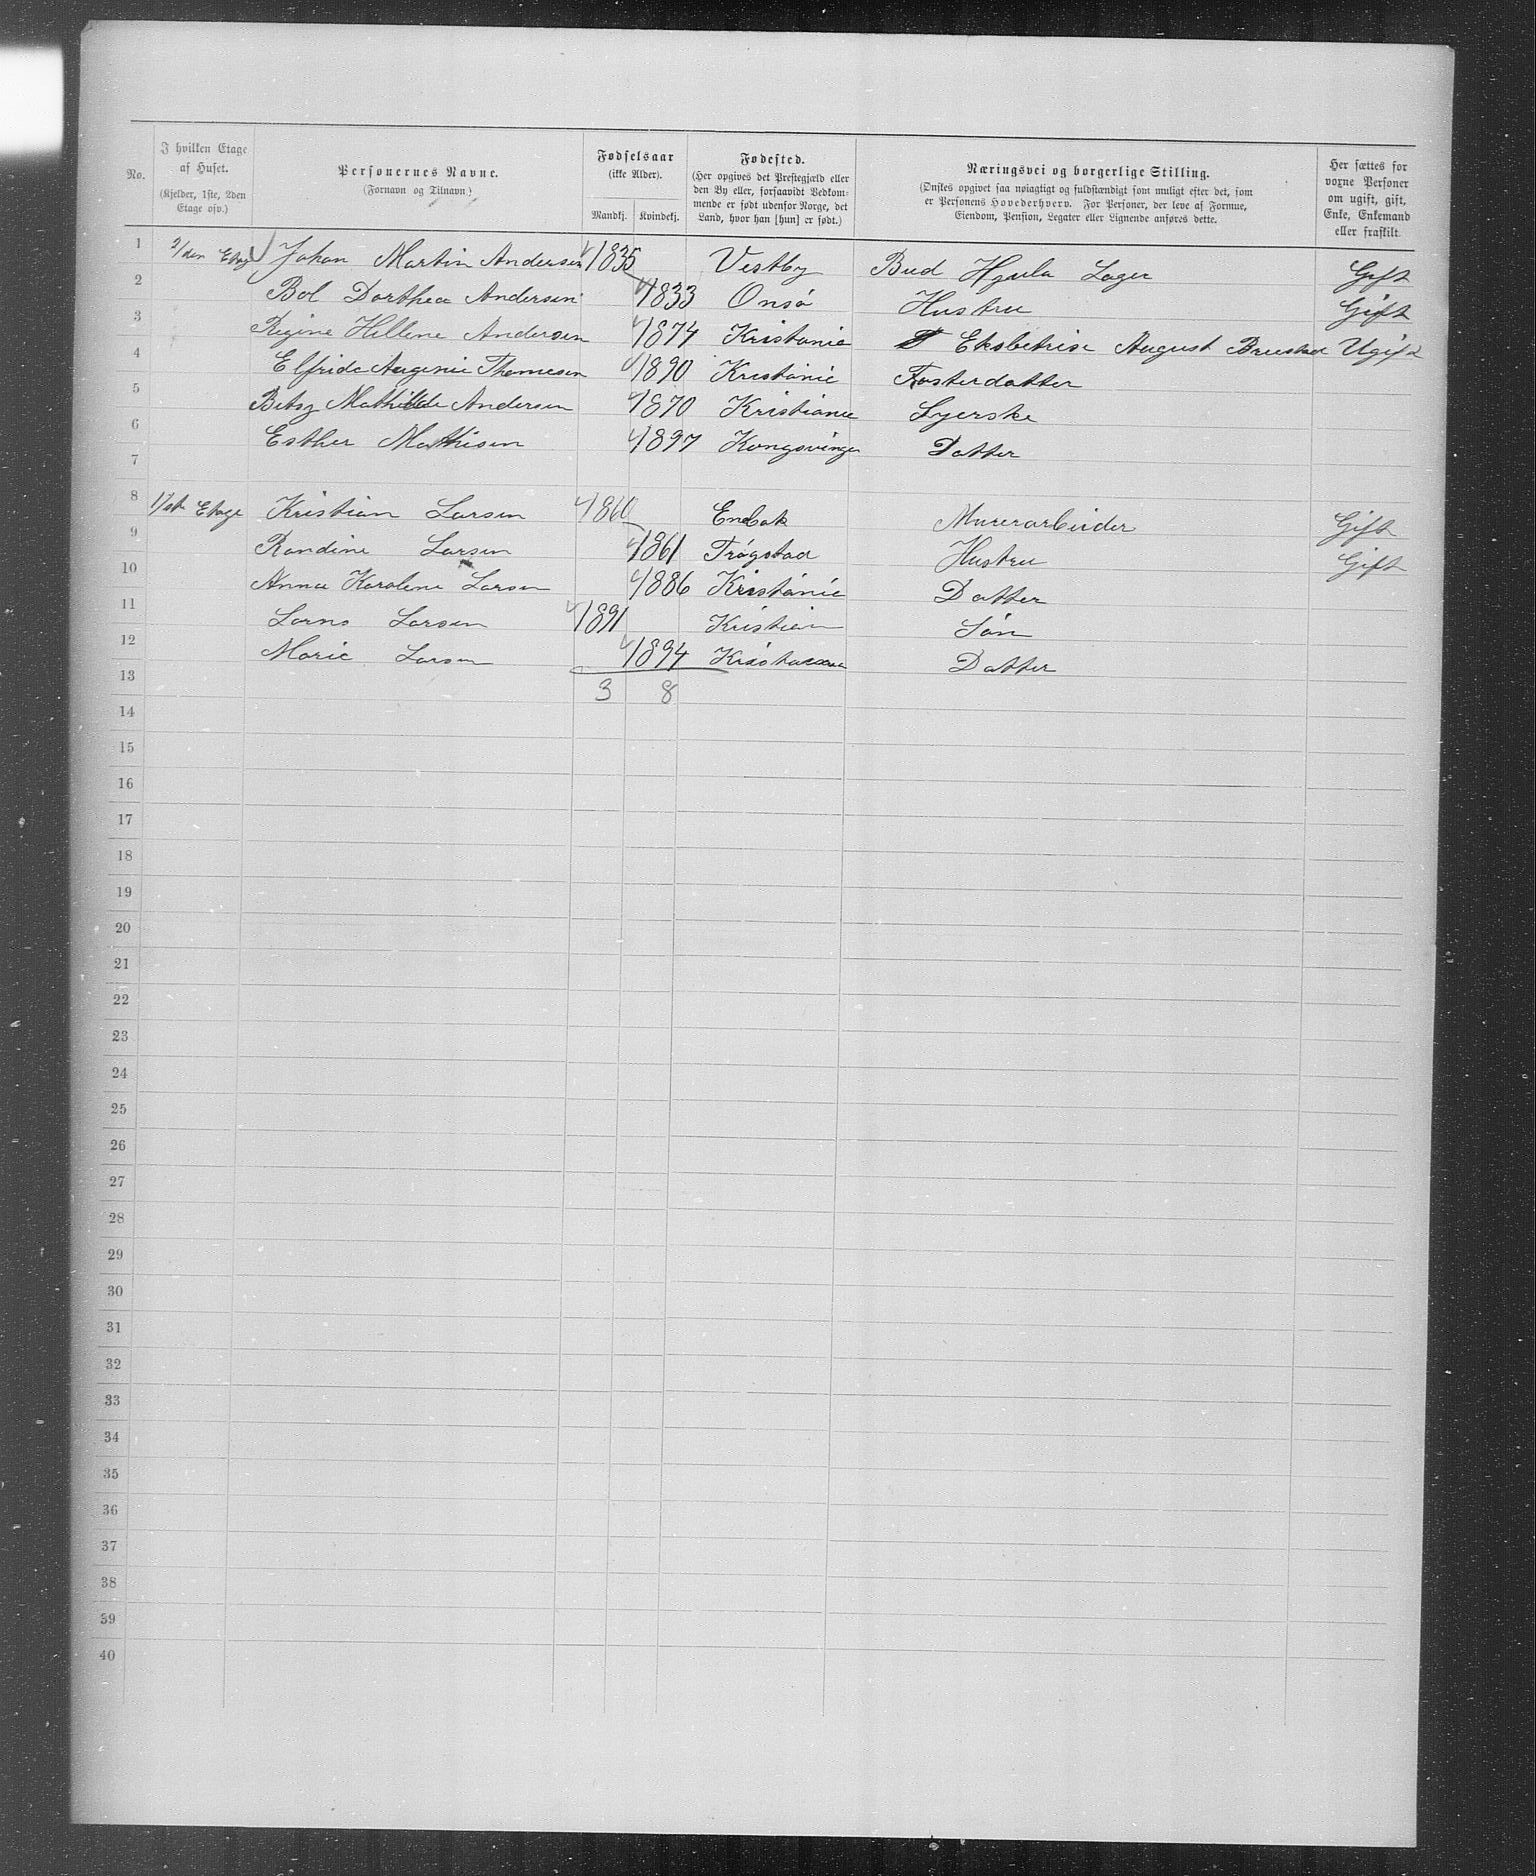 No. | I hvilken Etage af Huset. (Kjelder, 1ste, 2den Etage osv.) | Personernes Navne. (Fornavn og Tilnavn) | Fødselsaar (ikke Alder). Mandkj. | Kvindekj. | Fødested. (Her opgives det Prestegjæld eller den By eller, forsaavidt Vedkommende er født udenfor Norge, det Land, hvor han [hun] er født.) | Næringsvei og borgerlige Stilling. (Ønskes opgivet saa nøiagtigt og fuldstændigt som muligt efter det, som er Personens Hovederhverv. For Personer, der leve af Formue, Eiendom, Pension, Legater eller Lignende anføres dette. | Her sættes for voxne Personer om ugift, gift, Enke, Enkemand eller fraskilt.
1 2/den Etag Johan Martin Andersen 1835 Vestby Bud Hjula Lager Gift
2 Bol Dorthea Andersen 1833 Onsø Hustru Gift
3 Regine Hellene Andersen 1874 Kristania August Ugift
4 Elfride Augenie Thomesen 1890 Kristanie Fosterdatter
5 Betsy Mathilde Andersen 1870 Kristiania Syerske
6 Esther Mathisen 1897 Kongsvinger Datter
7
8 1/st Etage Kristian Larsen 1860 Enebak Murerarbeider Gift
9 Randine Larsen 1861 Trøgstad Hustru Gift
10 Anna Karolene Larsen 1886 Kristanie Datter
11 Larsen 1891 Kristian Søn
12 Marie Larsen 1894 Datter
13 3 8
14
15
16
17
18
19
20
21
22
23
24
25
26
27
28
29
30
31
32
33
34
35
36
37
38
39
40